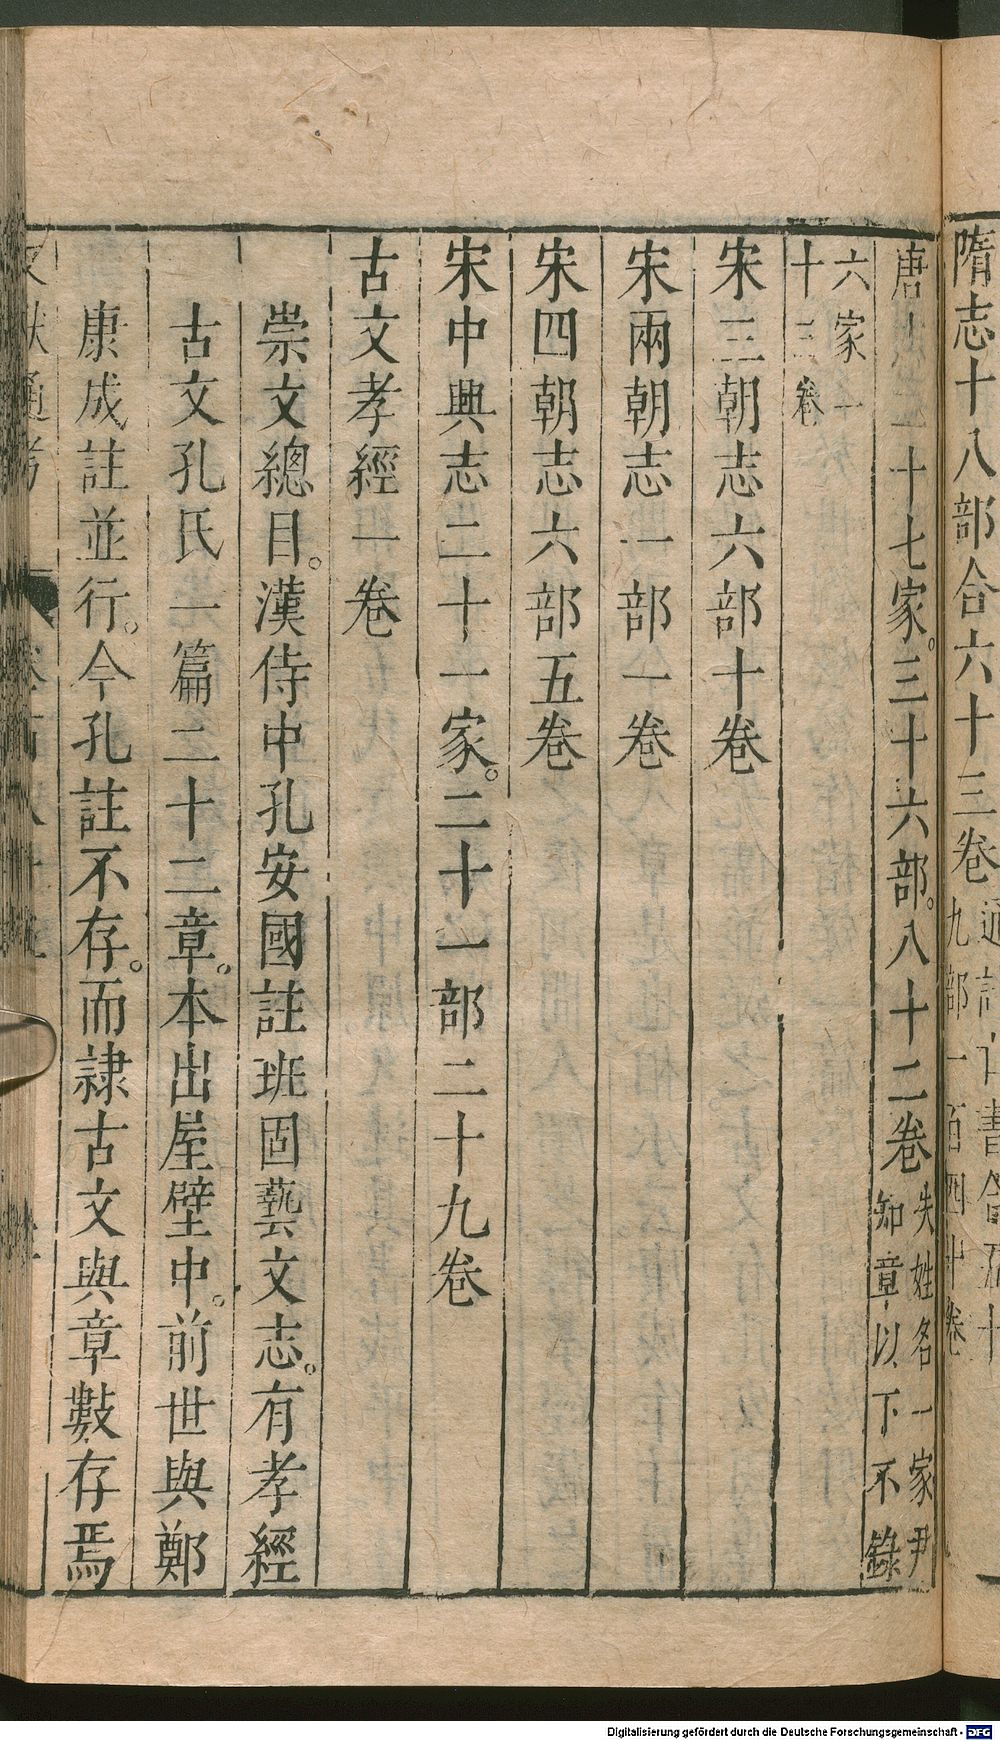 隋志十八部合六十三卷
九部一百四十卷
唐志二十七家。三十六部。八十二卷
失姓名一家尹
知章以下不錄
六家一
十三卷
宋三朝志六部十卷
宋兩朝志一部一卷
宋四朝志六部五卷
宋中興志二十一家。二十一部二十九卷
古文孝經一卷
崇文總目。漢侍中孔安國註班固藝文志。有孝經
古文孔氏一篇二十二章。本出屋壁中。前世與鄭
康成註並行。今孔註不存。而隷古文與章數存焉
文獻通考
Digitalisierung gefördert durch die Deutsche Forschungsgemeinschaft - DFG